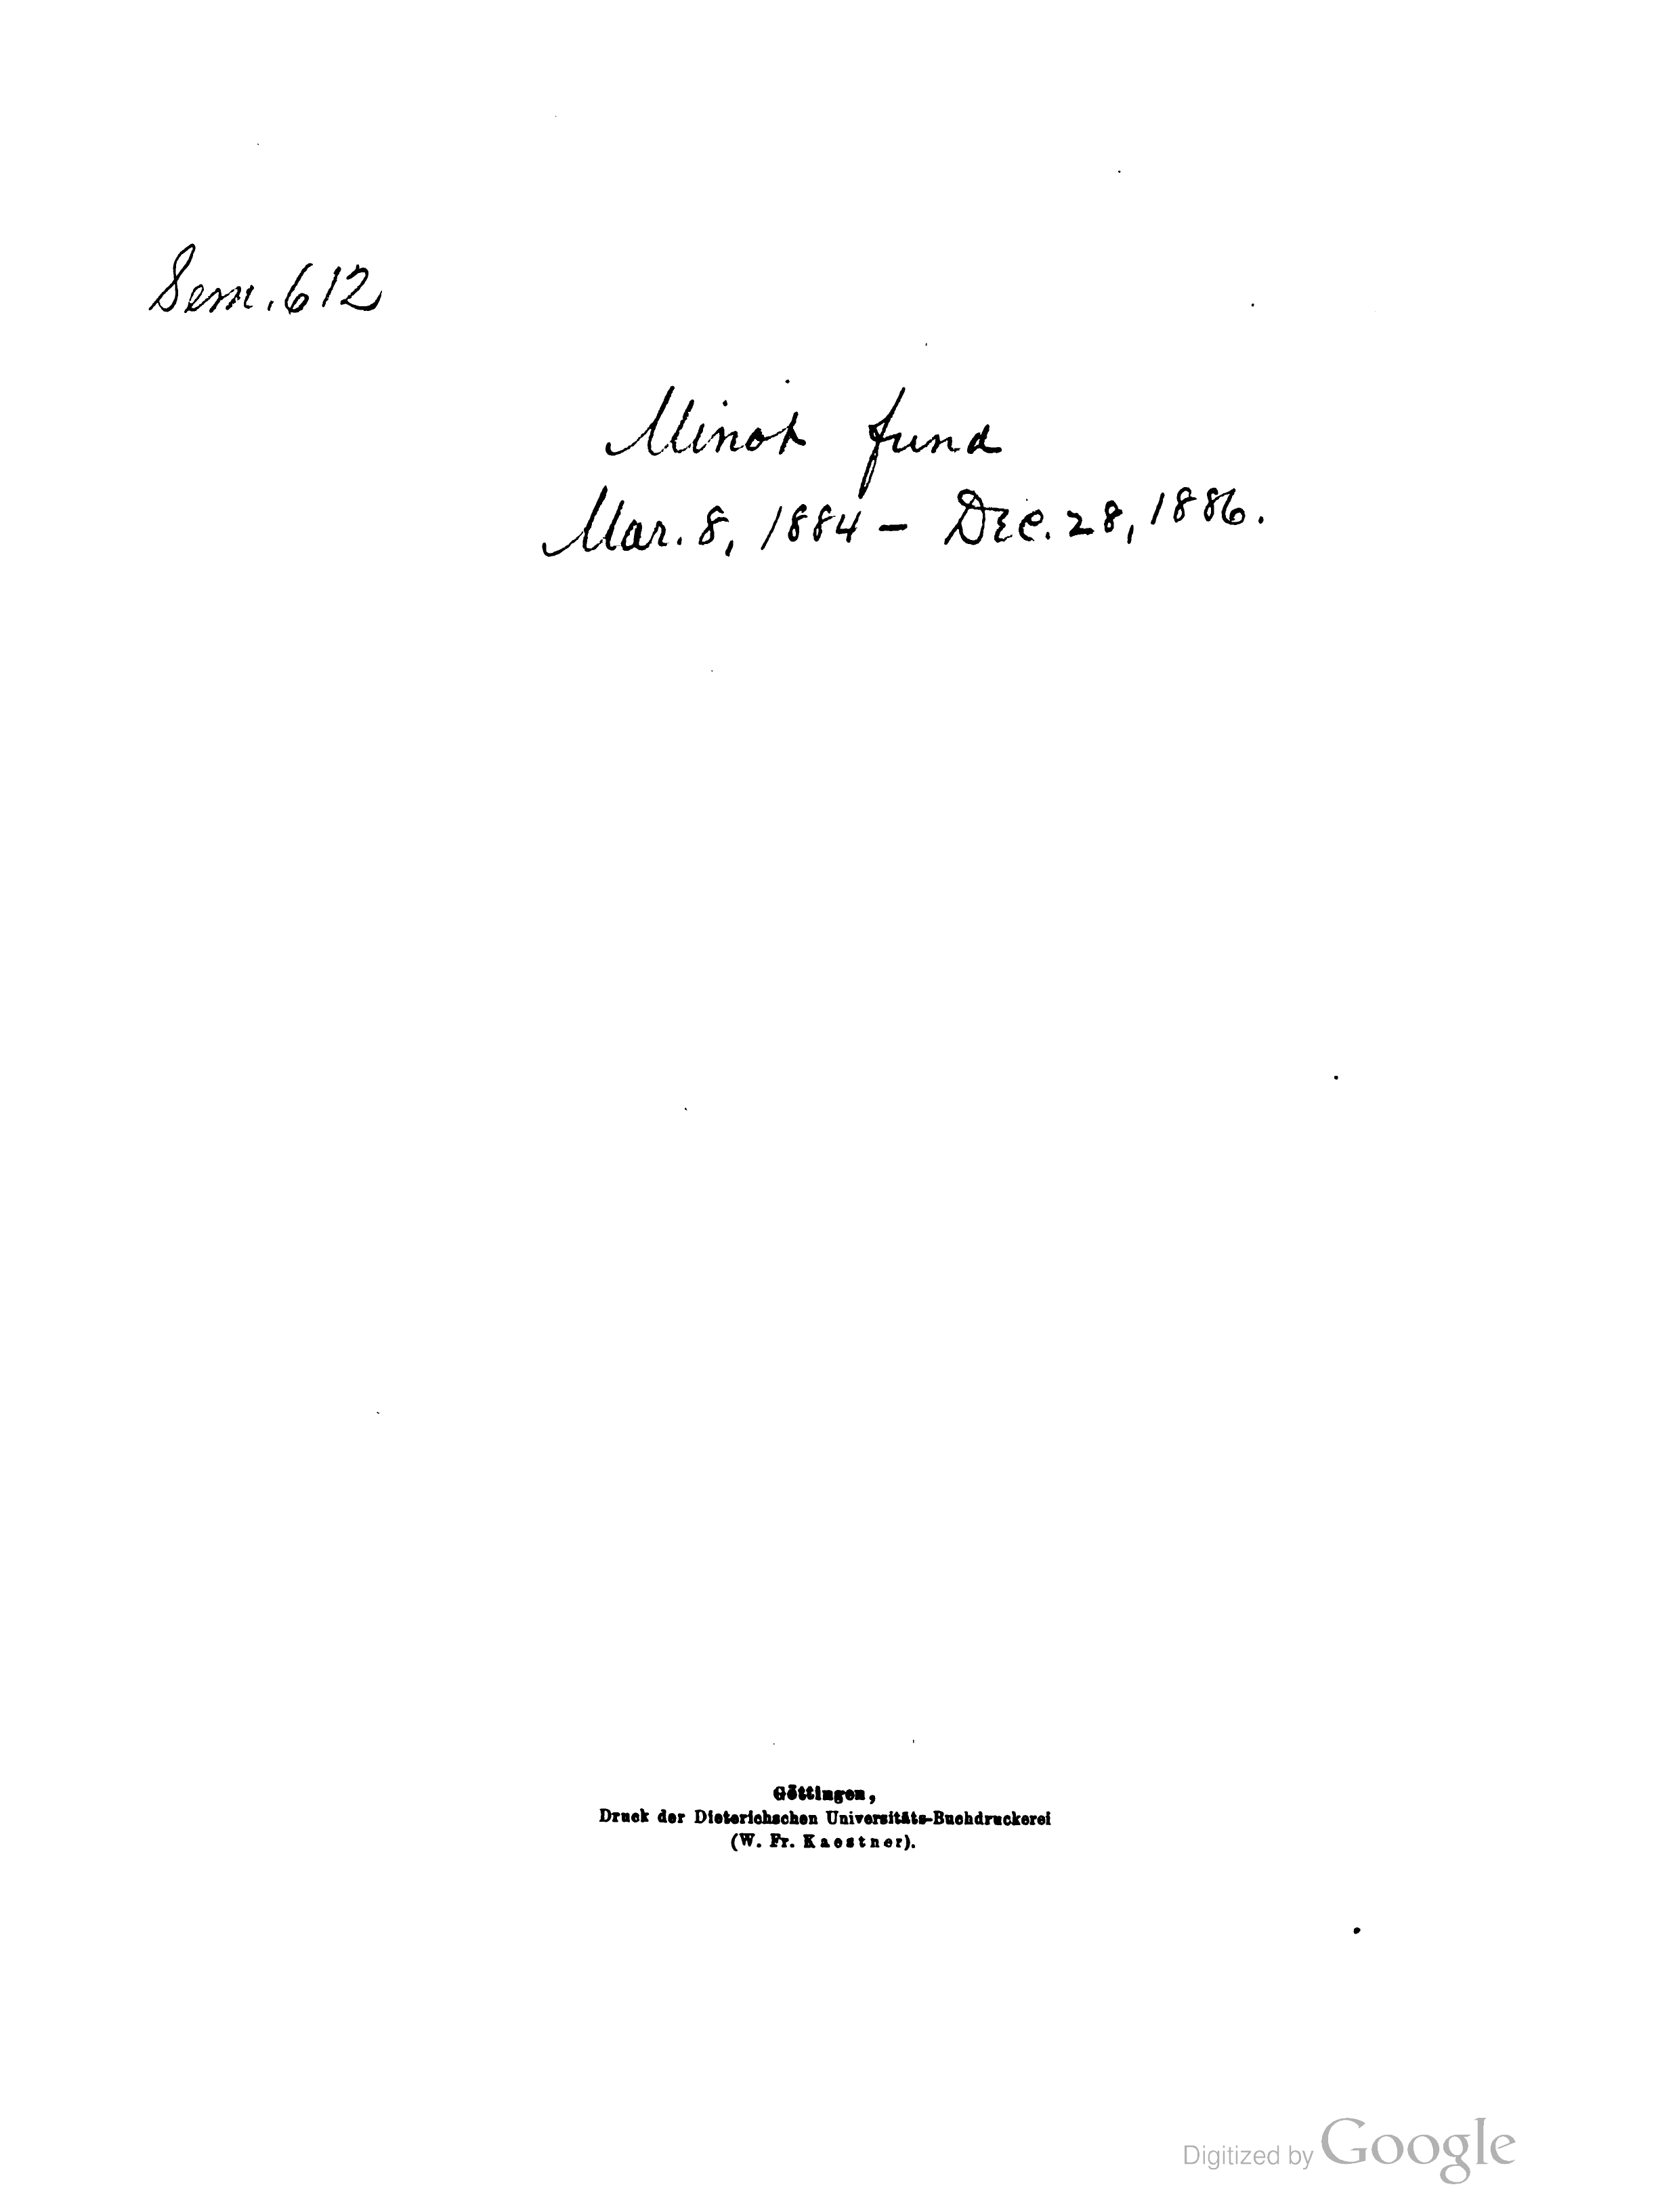 Sem. 612
Minot fund
Mar. 8, 1884 - Dec. 28, 1886.
Göttingen,
Druck der Dieterichschen Universitäts-Buchdruckerei
(W. Fr. Kaestner).
Digitized by Google